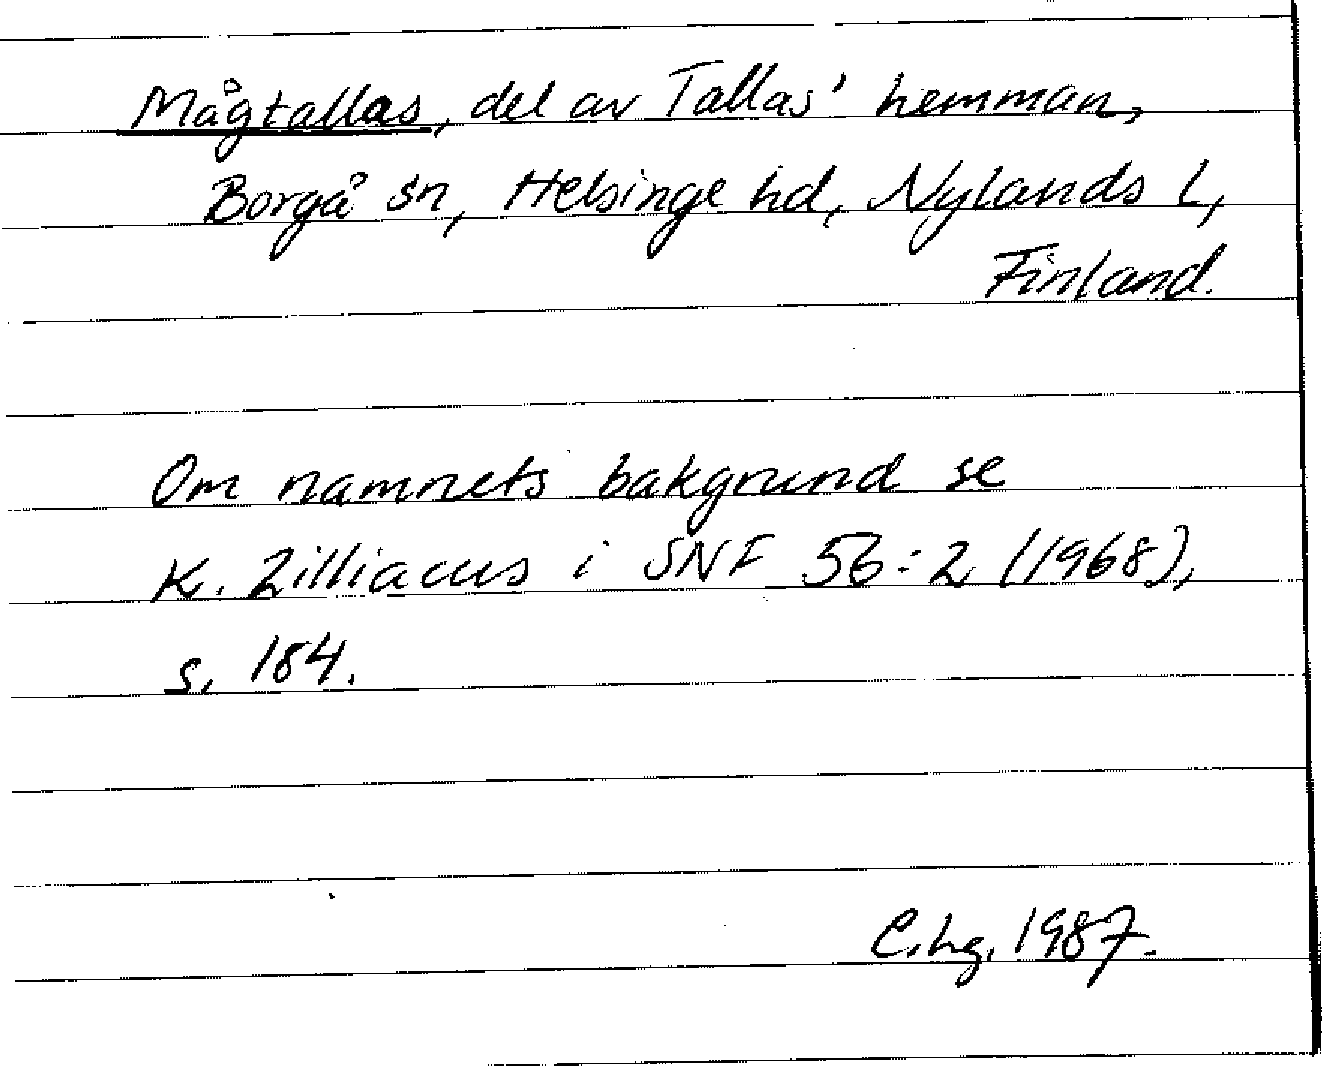 Mågtallas, del av Tallas' hemman,
Borgå sn, Helsinge hd, Nylands l,
Finland.
Om namnets bakgrund se
K. Zilliacus i SNF 56:2 (1968),
s. 184.
C.hg. 1987.